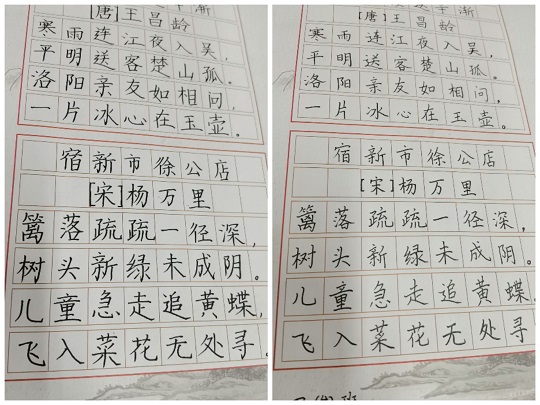 [唐]王昌龄
寒雨连江夜入吴,
平明送客楚山孤。
洛阳亲友如相问,
一片冰心在玉壶。
宿新市徐公店
[宋]杨万里
篱落疏疏一径深,
树头新绿未成阴。
儿童急走追黄蝶,
飞入菜花无处寻。
[唐]王昌龄
寒雨连江夜入吴,
平明送客楚山孤。
洛阳亲友如相问,
一片冰心在玉壶。
宿新市徐公店
[宋]杨万里
篱落疏疏一径深,
树头新绿未成阴。
儿童急走追黄蝶,
飞入菜花无处寻。